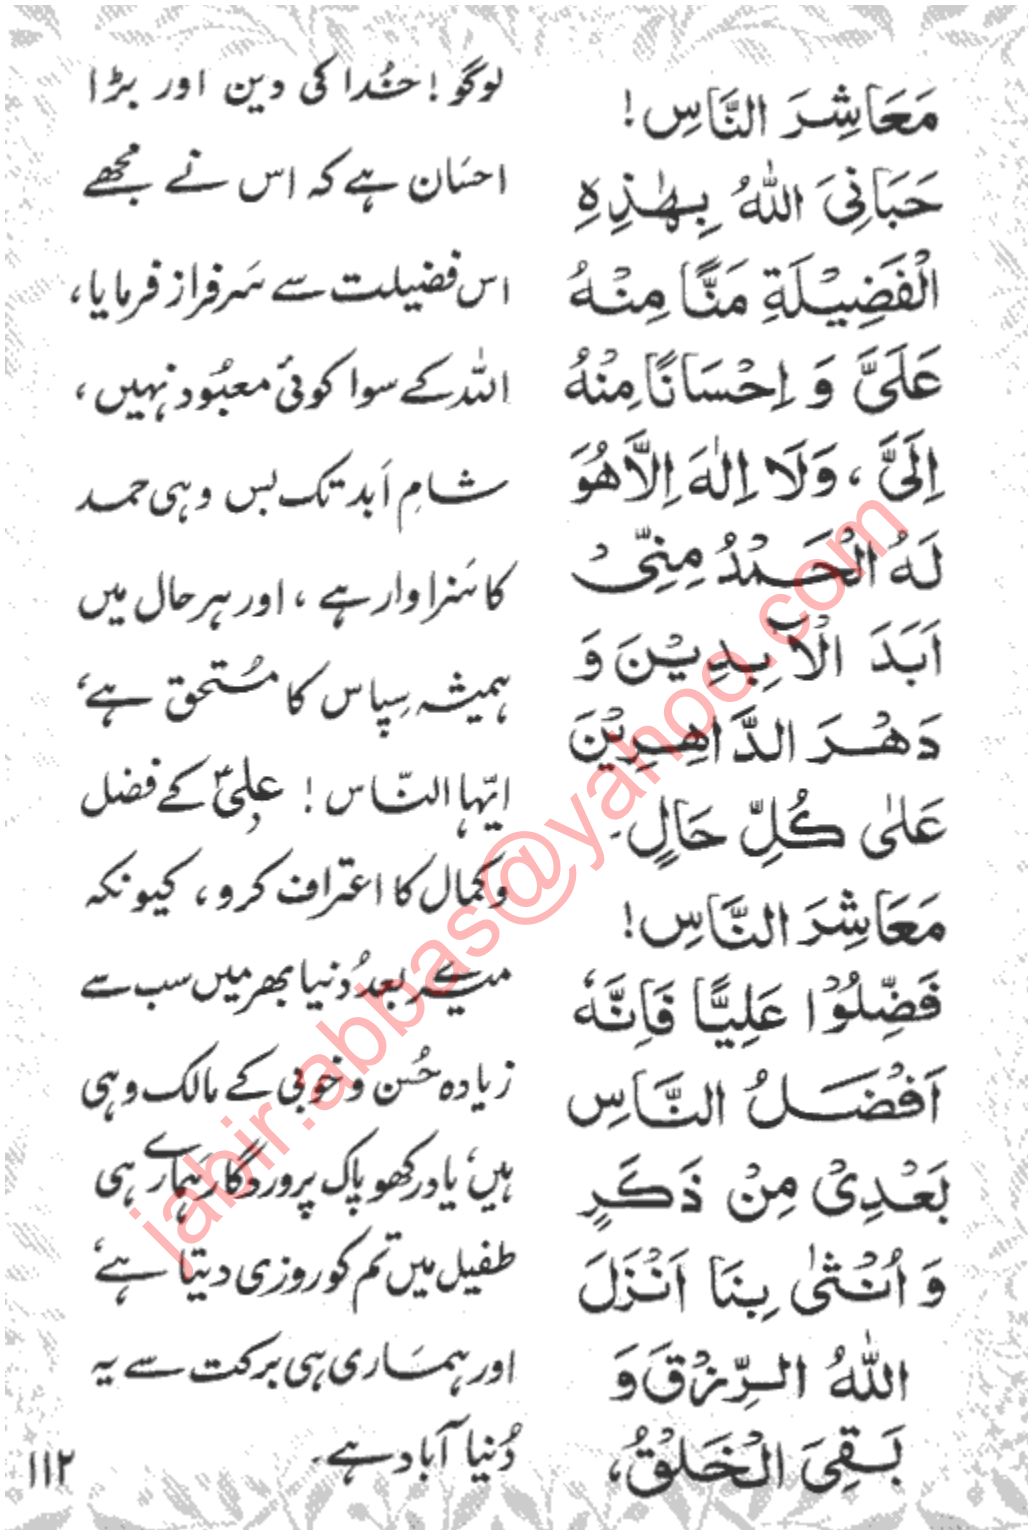 مَعَاشِرَ النَّاسِ!
حَبَانِیَ اللهُ بِهٰذِهِ
الْفَضِيْلَةِ مَنًّا مِنْهُ
عَلَیَّ وَ اِحْسَانًا مِنْهُ
اِلَیَّ، وَلَا اِلٰهَ اِلَّا هُوَ
لَهُ الْحَمْدُ مِنِّیْ
اَبَدَ الْاٰبِدِيْنَ وَ
دَهْرَ الدَّاهِرِيْنَ
عَلٰی كُلِّ حَالٍ۔
مَعَاشِرَ النَّاسِ!
فَضِّلُوْا عَلِيًّا فَاِنَّهٗ
اَفْضَلُ النَّاسِ
بَعْدِیْ مِنْ ذَكَرٍ
وَ اُنْثٰی بِنَا اَنْزَلَ
اللهُ الرِّزْقَ وَ
بَقِیَ الْخَلْقُ،
لوگو! خُدا کی دین اور بڑا
احسَان ہے کہ اس نے مجھے
اس فضیلت سے سَرفراز فرمایا،
اللہ کے سوا کوئی معبُود نہیں،
شامِ اَبد تک بس وہی حمد
کا سَزاوار ہے، اور ہر حال میں
ہمیشہ سِپاس کا مُستحق ہے،
ایّہا النّاس! علیؑ کے فضل
وکمال کا اعتراف کرو، کیونکہ
میرے بعد دُنیا بھر میں سب سے
زیادہ حُسن و خوبی کے مالک وہی
ہیں، یاد رکھو پاک پروردگار ہَمارے ہی
طفیل میں تم کو روزی دیتا ہے،
اور ہمَاری ہی برکت سے یہ
دُنیا آباد ہے۔
۱۱۲
jabir.abbas@yahoo.com